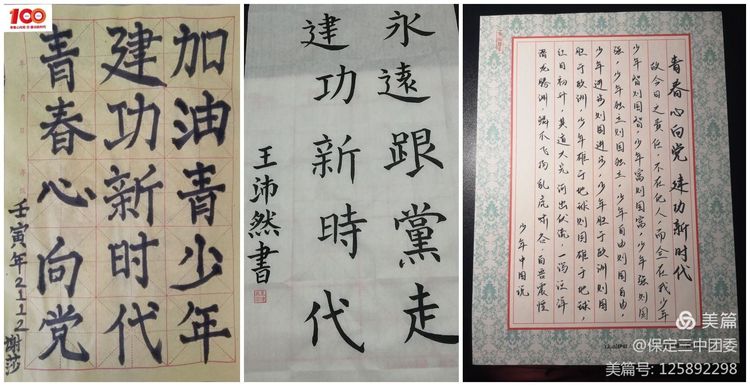 100
加油青少年
建功新时代
青春心向党
壬寅年2112谢莎
永遠跟黨走
建功新時代
王沛然書
青春心向党 建功新时代
故今日之责任,不在他人,而全在我少年
少年智则国智,少年富则国富,少年强则国
强,少年独立则国独立,少年自由则国自由,
少年进步则国进步,少年胜于欧洲则国
胜于欧洲,少年雄于地球则国雄于地球,
红日初升,其道大光,河出伏流,一泻汪洋
潜龙腾渊,鳞爪飞扬,乳虎啸谷,百兽震惶
少年中国说
美篇
@保定三中团委
美篇号: 125892298